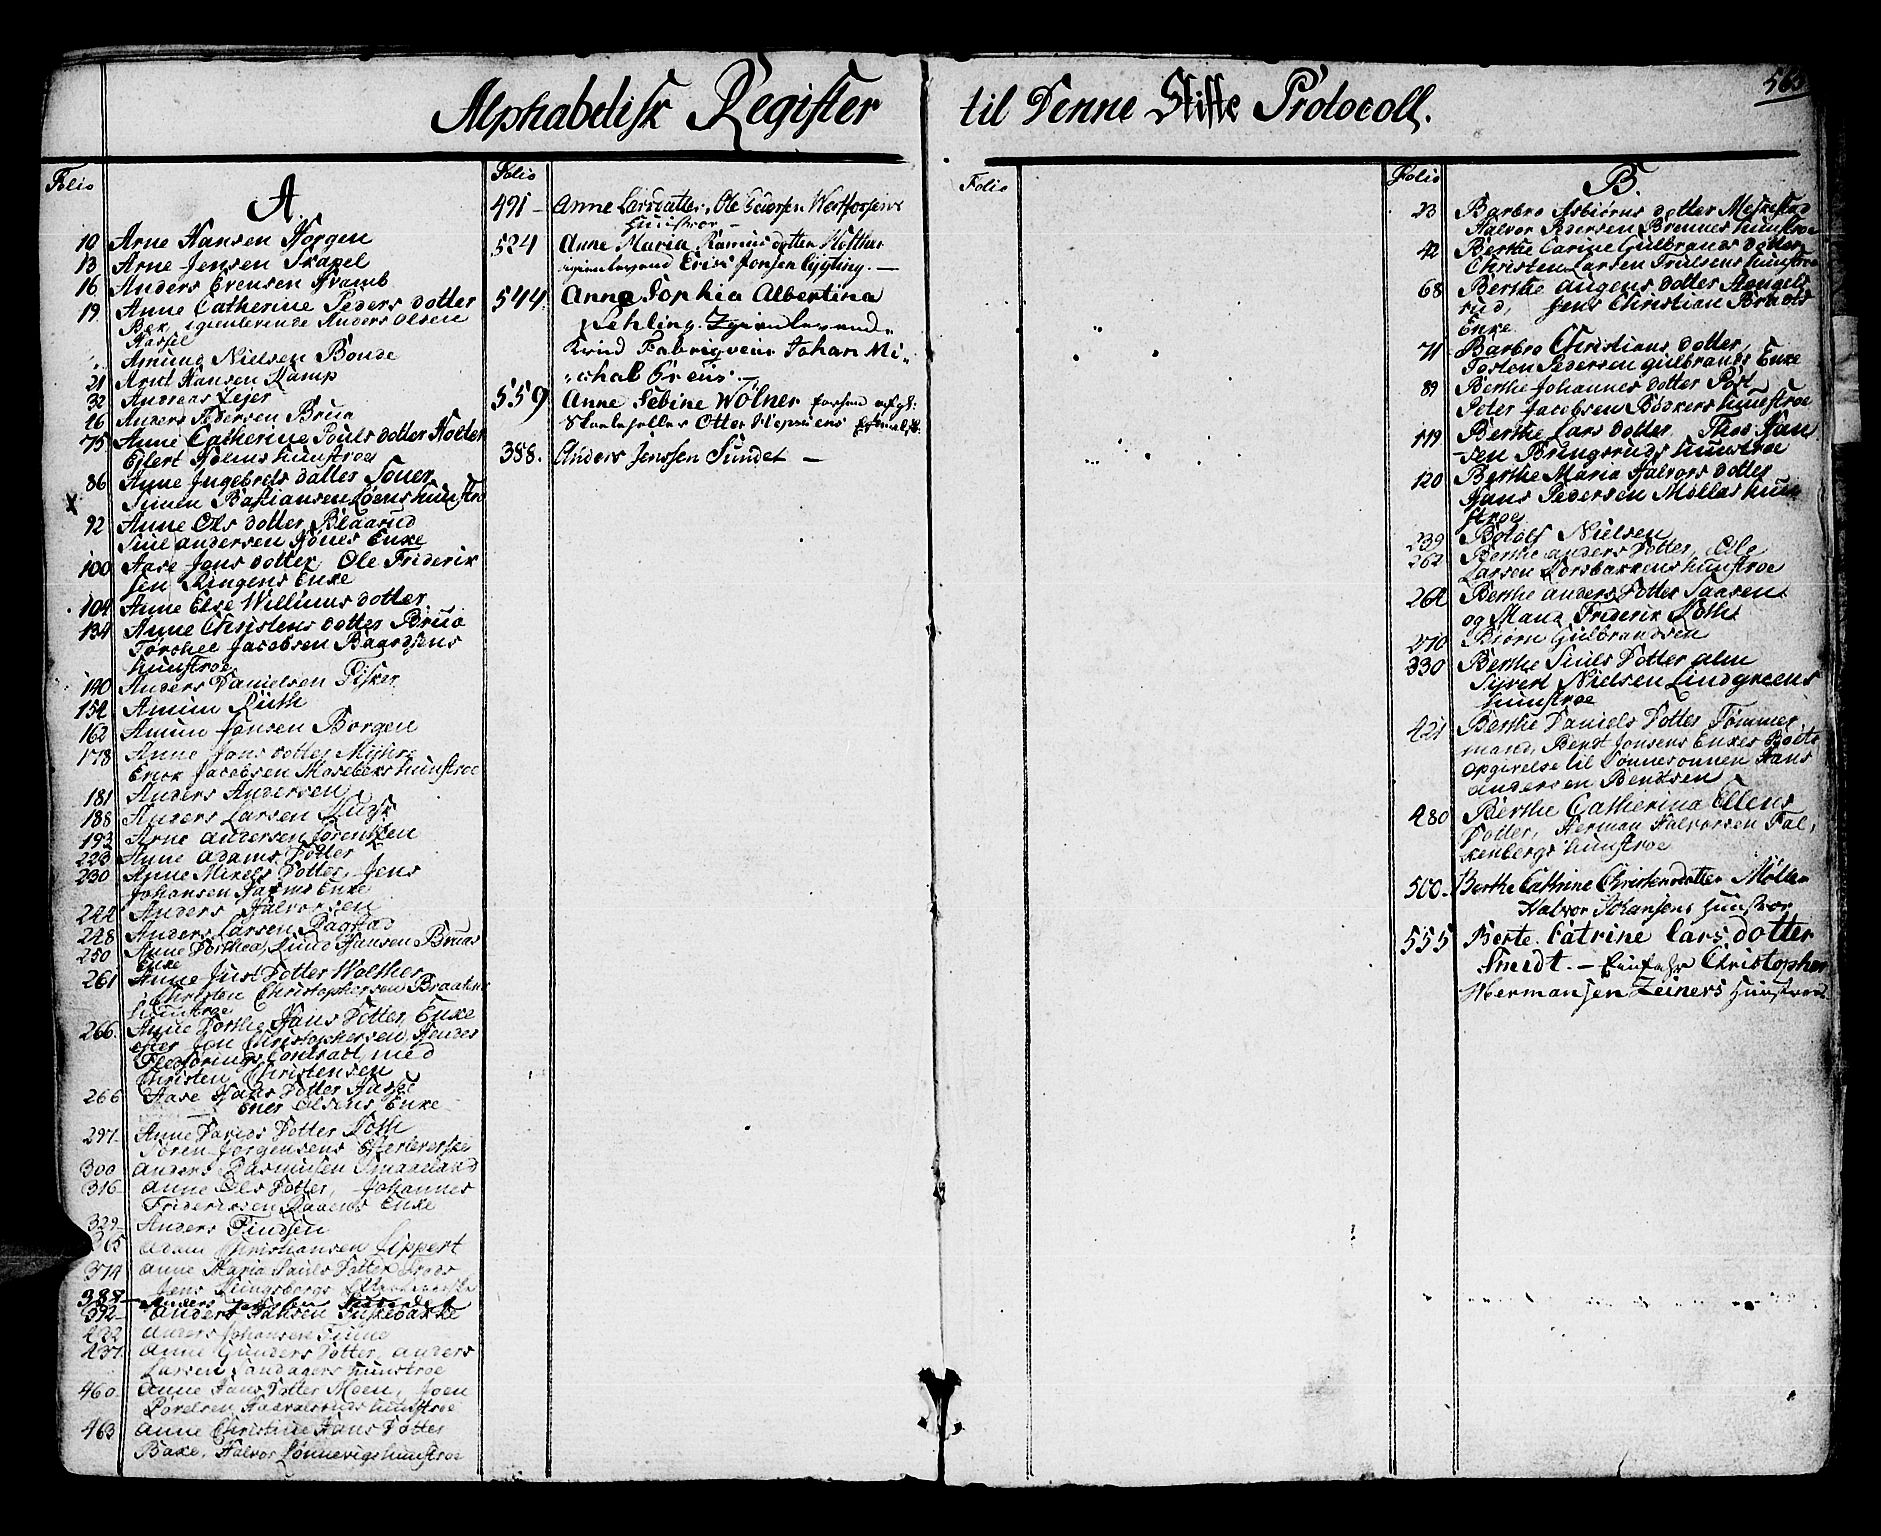 Alphabetisk Register til Denne Skifte Protocoll.
563
Folio
A.
10 Arne Hansen Horgen
13 Arne Jensen Skapel
16 Anders Evensen Kramb
19 Anne Catherine Peders dotter
igienlevende Anders Olsen
Hassel
" Amund Nielsen Bonde
21 Arnt Hansen Kamp
32 Andreas Lejer
46 Anders Pedersen Brua
75 Anne Catherine Pouls dotter Holter
Ejlert Holms hustroe
86 Anne Ingebrets datter Soner
Simen Bastiansen Loens hustro
92 Anne Ols dotter Blaarud
Siul andersen Enke
100 Aase Jons dotter, Ole Friderik
sen Ringens Enke
104 Anne Else Willums dotter
134 Anne Christens dotter Brua
Torchel Jacobsen Baardsens
hustroe
140 Anders Danielsen Fisker
154 Amun Ruth
162 Amun Jansen Borgen
178 Anne Jans dotter Myhre
Erick Jacobsen Mosebeks hustroe
181 Anders Andersen
188 Anders Larsen
193 Arne andersen Sørentzen
223 Anne Adams Dotter
230 Anne Mikels Dotter, Jens
Johansen Enke
244 Anders Halvorsen
248 Anders Larsen Ragstad
250 Anne Dorthea Lund Hansen Bruas
Enke
261 Anne Just Dotter Walther
Christen Christophersen Braatens
hustroe
266. Anne Dorthe Hans Dotter, Enke
efter Jon Christophersen, hendes
Flegførings Contract med
Christen Christensen
266 Aase Hans Dotter
Olsens Enke
297 Anne Davids Dotter Koth
Søren Jorgensens Efterleverske
300 Anders Rasmusen Smaaeland
316 Anne Ols Dotter, Johannes
Friderichsen Enke
329 Anders Findsen
365 Adam Christiansen Lippert
374 Anne Maria Pauls Dotter
Jens Kungsbergs Efterleverske
387
392 Anders Hansen
422 Anders Johansen Finne
437. Anne Gunders Dotter, anders
Larsen Sandagers hustroe
460 Anne Hans Dotter Moen, Joen
Povelsen hustroe
463 Anne Christine Hans Dotter
Bake, Halvor Lønnevigs hustroe
Folio
491 - Anne Larsdatter, Ole Westfossens
Huustroe -
524 Anne Maria Rasmus dotter Holther
igienlevend Eric Jonsen Lygting. -
544 Anne Sophia Albertina
Nehling. Igienlevend.
Kvind Fabriqveur Johan Mi-
-chal Greus. -
559 Anne Sebine Wölner
388. Anders Jenssen Sundet -
Folio
Folio
B.
23 Barbro Asbiørns dotter Mestestad
Halvor Pedersen Brennes hustroe
42 Berthe Carine Gulbrands dotter
Christen Larsen Trulsens hustroe
68 Berthe augens dotter Hengels
rud, Jens Christian Brudts
Enke
71 Barbro Christians dotter,
Tosten Pedersen gulbrands Enke
89 Berthe Johannes dotter Post
Peter Jacobsen Bødkers hustroe
119 Berthe Lars dotter, Thor Han
-sen Bringsruds huustroe
120 Berthe Maria Halvors dotter
Hans Pedersen Møllers huu
stroe
239 Botolf Nielsen
262 Berthe anders Dotter, Ole
Larsen Korsbakkens hustroe
264 Berthe anders Dotter Saasen
og Mand Friderik Koth
270 Biørn Gulbrandsen
330 Berthe Siuls Dotter alm
Syvert Nielsen Lindgreens
huustroe
421 Berthe Daniels Dotter Tømmer
mand, Bendt Jonsens Enkes Boets
opgivelse til Sønnesønnen Hans
andersen Bendtsen
480 Berthe Catherina Ellens
Dotter, Herman Halvorsen Fal,
kenbergs hustroe
500 - Berthe Cathrine Christensdatter Møller
Halvor Johansens Huustroe
555 Berte Catrine Lars dotter
Smedt. - Christopher
Hermansen Zeiners Huustroe